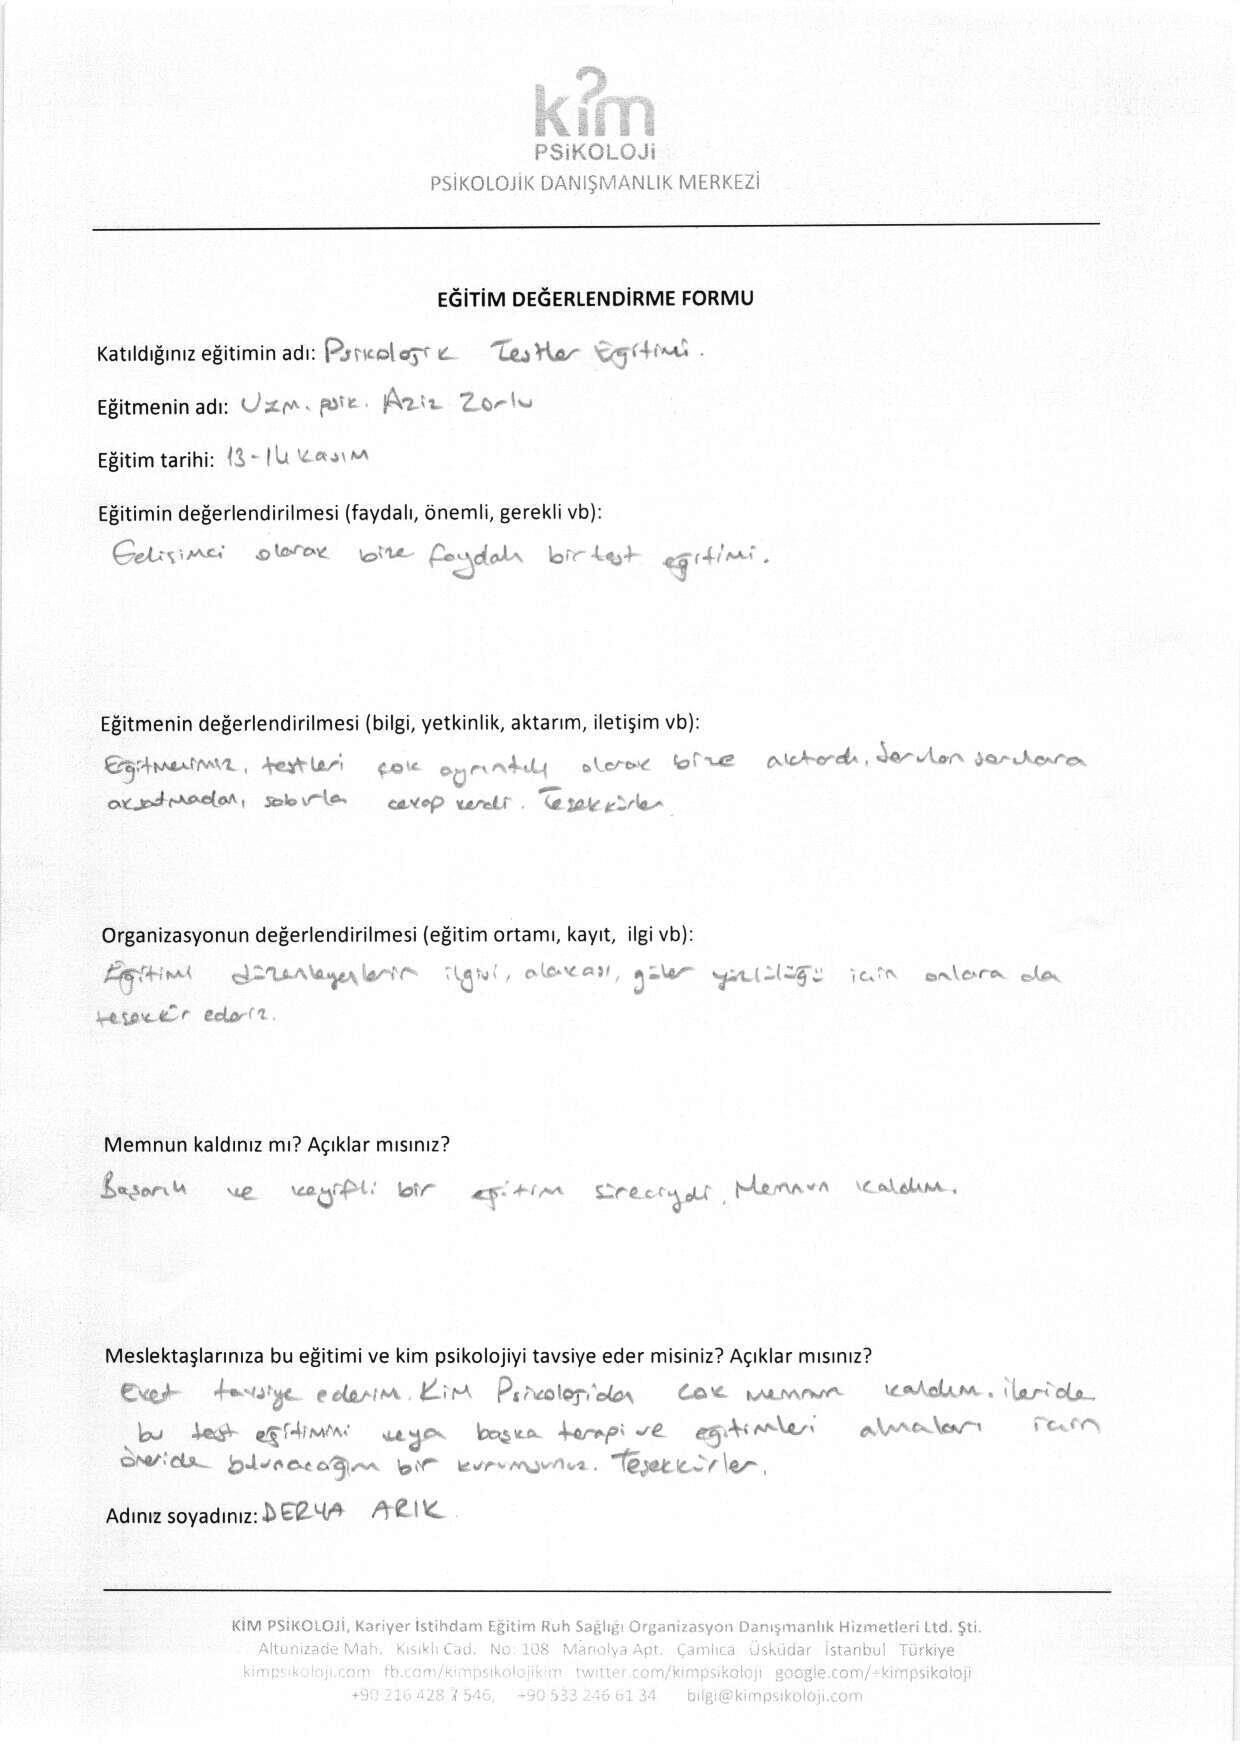 kim
PSiKOLOJi
PSİKOLOJİK DANIŞMANLIK MERKEZİ
EĞİTİM DEĞERLENDİRME FORMU
Katıldığınız eğitimin adı: Psikolojik Testler Eğitimi.
Eğitmenin adı: Uzm. psk. Aziz Zorlu
Eğitim tarihi: 13-14 Kasım
Eğitimin değerlendirilmesi (faydalı, önemli, gerekli vb):
Gelişimci olarak bize faydalı bir test eğitimi.
Eğitmenin değerlendirilmesi (bilgi, yetkinlik, aktarım, iletişim vb):
Eğitmenimiz, testleri çok ayrıntılı olarak bize aktardı. Sorulan sorulara
sabırla cevap verdi. Teşekkürler
Organizasyonun değerlendirilmesi (eğitim ortamı, kayıt, ilgi vb):
Eğitimi düzenleyenlerin ilgisi, alakası, güler yüzlülüğü için onlara da
teşekkür ederiz.
Memnun kaldınız mı? Açıklar mısınız?
Başarılı ve keyifli bir eğitim süreciydi. Memnun kaldım.
Meslektaşlarınıza bu eğitimi ve kim psikolojiyi tavsiye eder misiniz? Açıklar mısınız?
Evet tavsiye ederim. Kim Psikoloji'den çok memnun kaldım. İleride
bu test eğitimini veya başka terapi ve eğitimleri almaları için
öneride bulunacağım bir kurumsunuz. Teşekkürler.
Adınız soyadınız: DERYA ARIK
KİM PSİKOLOJİ, Kariyer İstihdam Eğitim Ruh Sağlığı Organizasyon Danışmanlık Hizmetleri Ltd. Şti.
Altunizade Mah. Kısıklı Cad. No: 108 Manolya Apt. Çamlıca Üsküdar İstanbul Türkiye
kimpsikoloji.com fb.com/kimpsikolojikim twitter.com/kimpsikoloji google.com/+kimpsikoloji
+90 216 428 7 546, +90 533 246 61 34 bilgi@kimpsikoloji.com